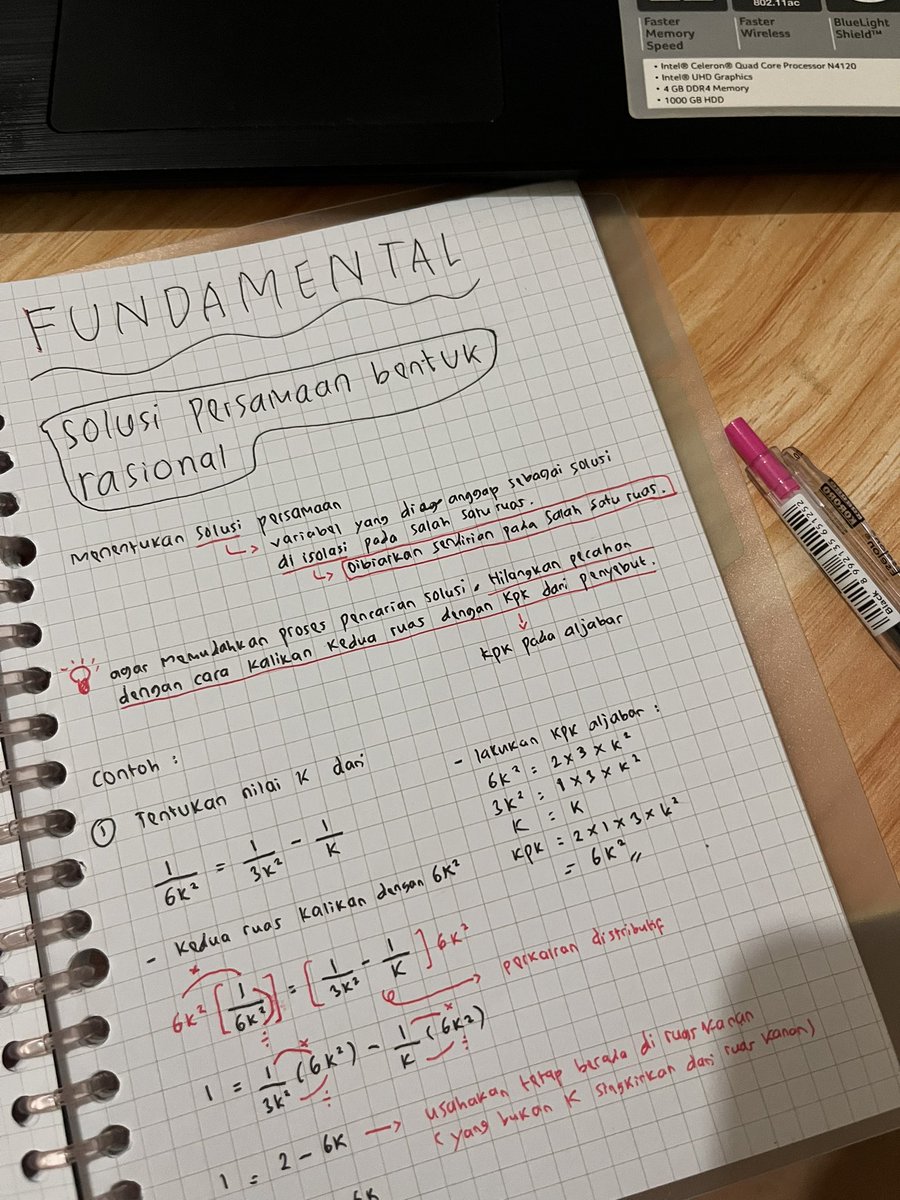 802.11ac
Faster
Memory
Speed
Faster
Wireless
BlueLight
Shield™
• Intel® Celeron® Quad Core Processor N4120
• Intel® UHD Graphics
• 4 GB DDR4 Memory
• 1000 GB HDD
FUNDAMENTAL
solusi persamaan bentuk
rasional
Menentukan solusi persamaan
↳ variabel yang di anggap sebagai solusi
di isolasi pada salah satu ruas.
↳ Dibiarkan sendirian pada salah satu ruas.
agar memudahkan proses pencarian solusi, Hilangkan pecahan
dengan cara kalikan kedua ruas dengan KPK dari penyebut.
↓
KPK pada aljabar
Contoh :
① Tentukan nilai K dari
1/6K² = 1/3K² - 1/K
- lakukan KPK aljabar :
6K² = 2 x 3 x K²
3K² = 1 x 3 x K²
K = K
KPK = 2 x 1 x 3 x K²
= 6K² //
- Kedua ruas kalikan dengan 6K²
6K² [1/6K²] = [1/3K² - 1/K] 6K²
→ perkalian distributif
1 = 1/3K² (6K²) - 1/K (6K²)
1 = 2 - 6K → usahakan tetap berada di ruas kanan
( yang bukan K singkirkan dari ruas kanan)
6K
KOKORO
Black
8 992135 651252